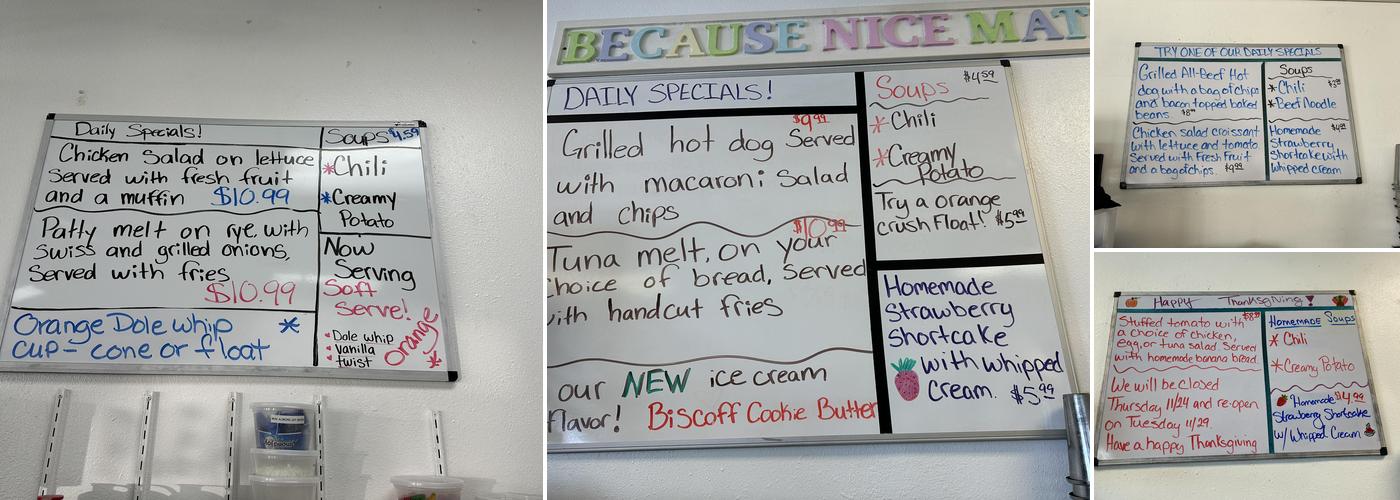 Daily Specials!
Chicken Salad on lettuce
Served with fresh fruit
and a muffin $10.99
Patty melt on rye, with
Swiss and grilled onions,
Served with fries
$10.99
Orange Dole whip *
cup - cone or float
Soups $4.59
*Chili
*Creamy
Potato
Now
Serving
Soft
Serve!
Dole whip
Vanilla
twist
Orange *
BECAUSE NICE MAT
DAILY SPECIALS!
$9.99
Grilled hot dog Served
with macaroni Salad
and chips
$10.99
Tuna melt, on your
Choice of bread, Served
with handcut fries
our NEW ice cream
flavor! Biscoff Cookie Butter
Soups $4.59
*Chili
*Creamy
Potato
Try a orange
crush Float! $5.99
Homemade
Strawberry
Shortcake
with whipped
Cream. $5.99
TRY ONE OF OUR DAILY SPECIALS
Grilled All-Beef Hot
dog with a bag of chips
and bacon topped baked
beans.
Chicken salad croissant
with lettuce and tomato
Served with Fresh Fruit
and a bag of chips. $9.99
Soups
*Chili
*Beef Noodle
Homemade
Strawberry
Shortcake with
whipped cream
Happy Thanksgiving
Stuffed tomato with
a choice of chicken,
egg, or tuna salad. Served
with homemade banana bread.
We will be closed
Thursday 11/24 and re-open
on Tuesday 11/29.
Have a happy Thanksgiving
HOMEMADE Soups
* Chili
*Creamy Potato
Homemade $4.99
Strawberry Shortcake
w/ Whipped Cream